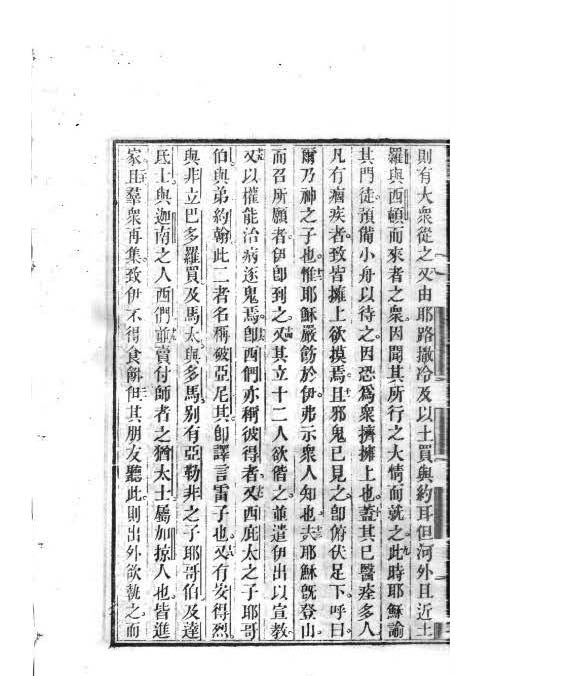 則有大衆從之又由耶路撒冷及以土買與約耳但河外且近土
羅與西頓而來者之衆因聞其所行之大情而就之此時耶穌諭
其門徒預備小舟以待之因恐爲衆擠擁上也蓋其已醫痊多人
凡有痼疾者致皆擁上欲摸焉且邪鬼已見之卽俯伏足下呼曰
爾乃神之子也惟耶穌嚴飭於伊弗示衆人知也夫耶穌旣登山
而召所願者伊卽到之又其立十二人欲偕之並遣伊出以宣教
又以權能治病逐鬼焉卽西們亦稱彼得者又西庇太之子耶哥
伯與弟約翰此二者名稱破亞尼其卽譯言雷子也又有安得烈
與非立巴多羅買及馬太與多馬別有亞勒非之子耶哥伯及達
氐士與迦南之人西們並賣付師者之猶太士屬加掠人也皆進
家且羣衆再集致伊不得食餅但其朋友聽此則出外欲執之而